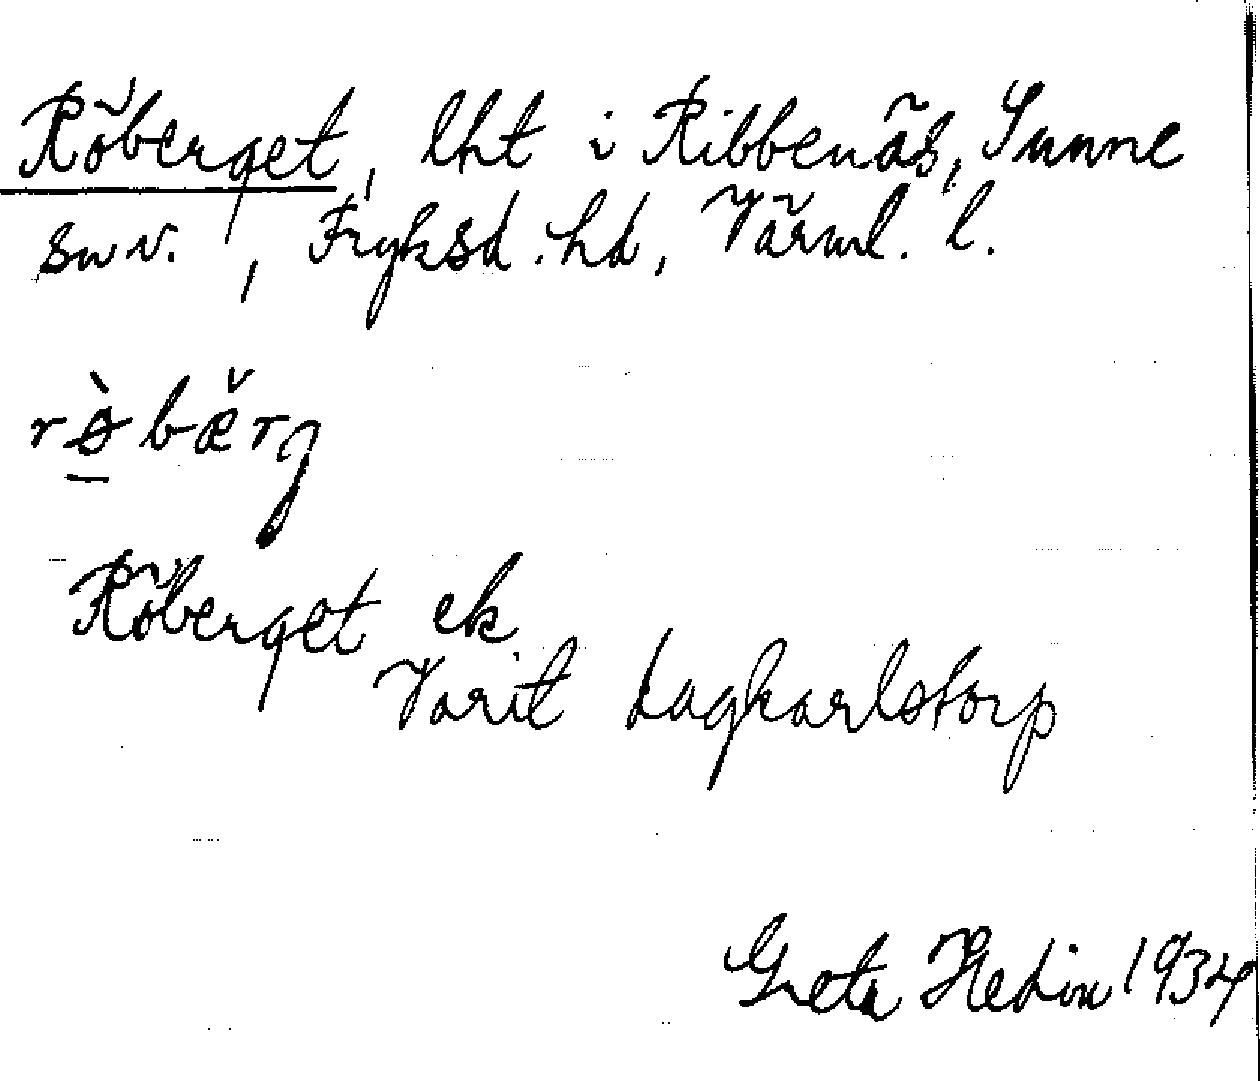 Röberget, lht i Ribbenäs, Sunne
sn v., Fryksd. hd, Värml. l.
rø̀bæ̌rg
Röberget ek
Varit dagkarlstorp
Greta Hedin 1934